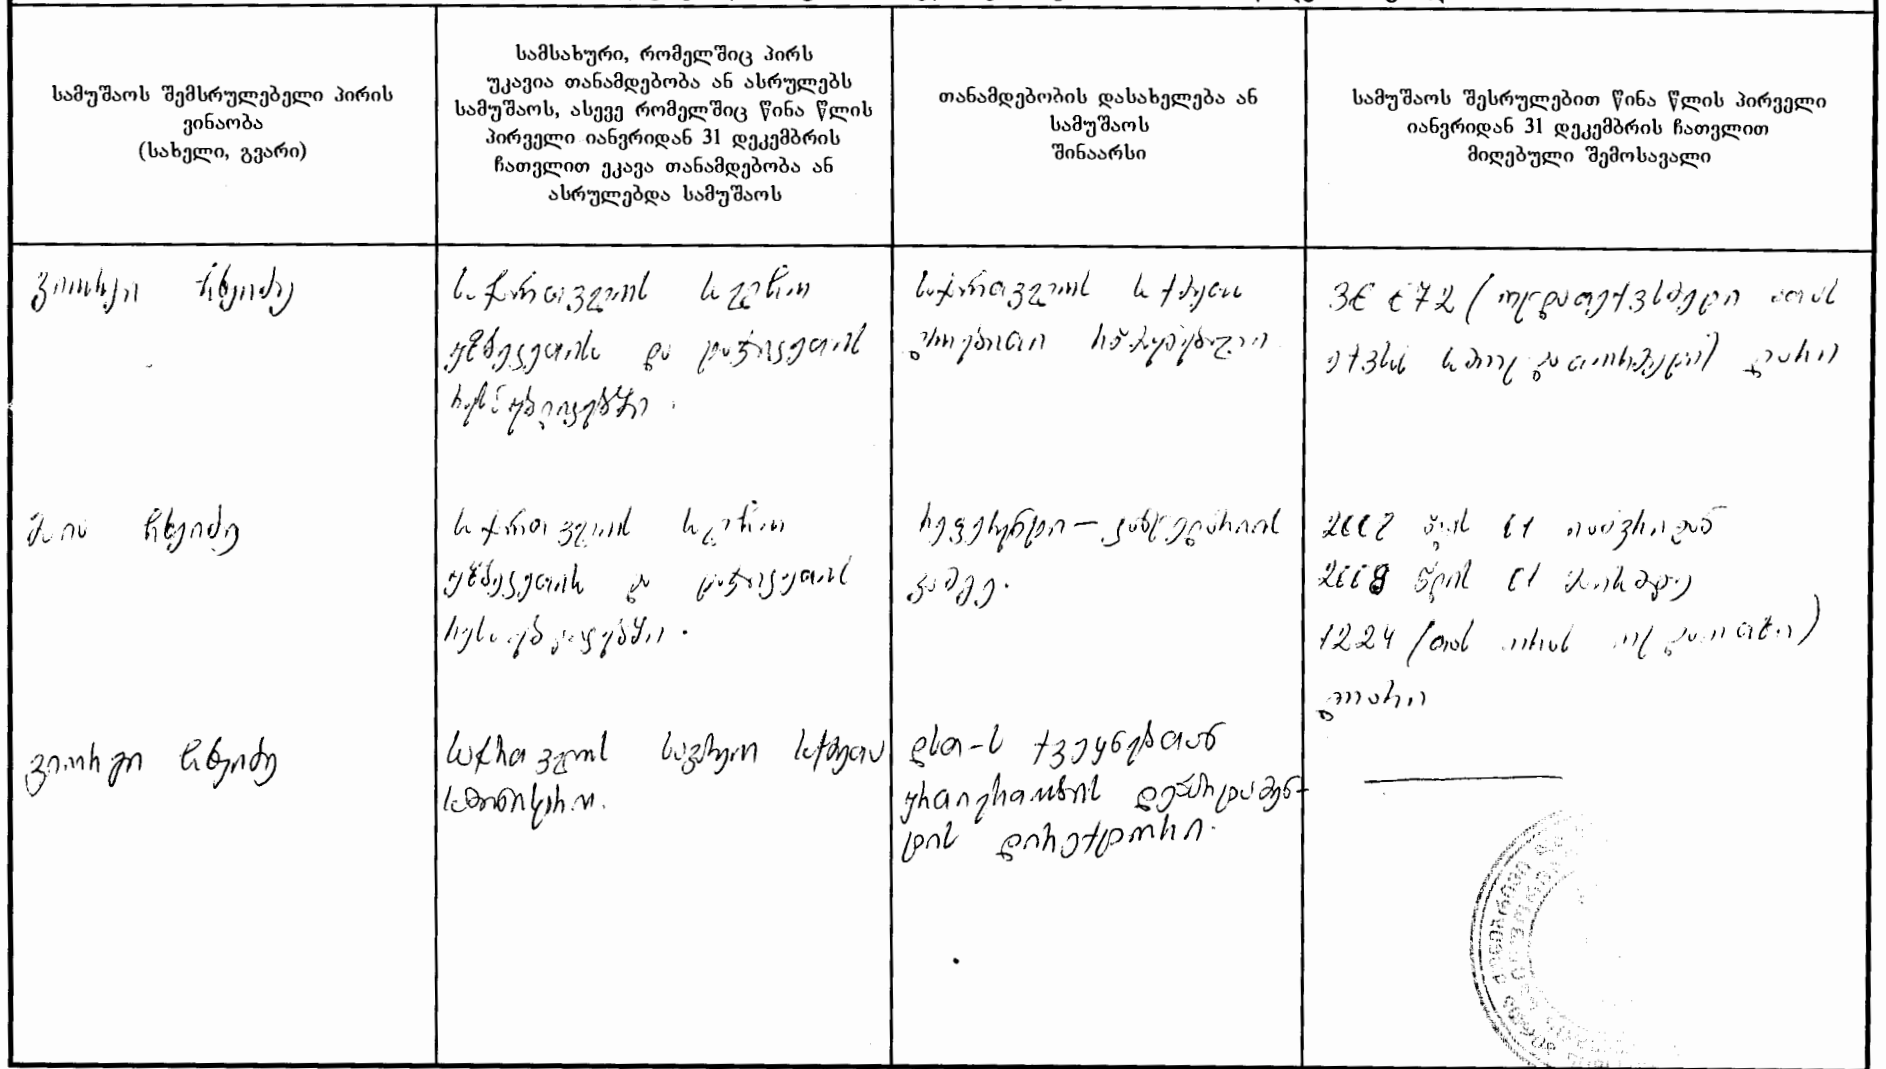 სამუშაოს შემსრულებელი პირის
ვინაობა
(სახელი, გვარი)
სამსახური, რომელშიც პირს
უკავია თანამდებობა ან ასრულებს
სამუშაოს, ასევე რომელშიც წინა წლის
პირველი იანვრიდან 31 დეკემბრის
ჩათვლით ეკავა თანამდებობა ან
ასრულებდა სამუშაოს
თანამდებობის დასახელება ან
სამუშაოს
შინაარსი
სამუშაოს შესრულებით წინა წლის პირველი
იანვრიდან 31 დეკემბრის ჩათვლით
მიღებული შემოსავალი
გიორგი
საქართველოს საელჩო
უზბეკეთის და ტაჯიკეთის
რესპუბლიკებში.
საქართველოს საქმეთა
დროებითი რწმუნებული
ათას
ექვსას სამოცდათორმეტი) ლარი
მაია
საქართველოს საელჩო
უზბეკეთის და ტაჯიკეთის
რესპუბლიკებში.
რეფერენტი – კანცელარიის
გამგე.
2008 წლის 01 იანვრიდან
2008 წლის 01
1224 (ათას ორას ოცდაოთხი)
ლარი
გიორგი
საქართველოს საგარეო საქმეთა
სამინისტრო.
დსთ-ს ქვეყნებთან
ურთიერთობის დეპარტამენ-
ტის დირექტორი.